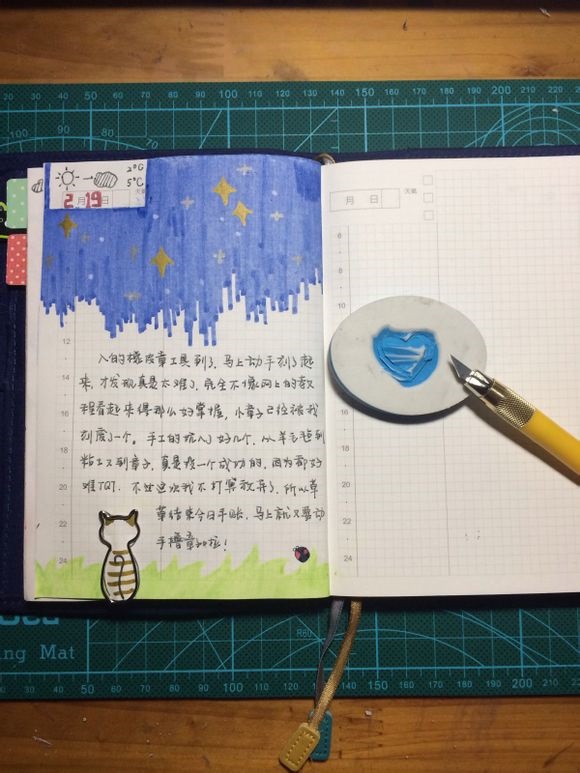 20 30 40 50 60 70 80 90 100 110 120 130 140 150 160 170 180 190 200
2°C
5°C
天氣
2月19日
月 日
天氣
6
8
10
12
14
16
18
20
22
24
12
14
16
18
20
22
24
入的橡皮章工具到了,马上动手刻了起
来,才发现真是太难了,完全不像网上的教
程看起来得那么好掌握,小章子已经被我
刻废了一个。手工的坑入了好几个,从羊毛毡到
粘土又到章子,真是没一个成功的,因为都好
难TQT,不过这次我不打算放弃了,所以草
草结束今日手账,马上就又要动
手撸章 啦!
ng Mat
R60
20 30 40 50 60 70 80 90 100 110 120 130 140 150 160 170 180 190 200